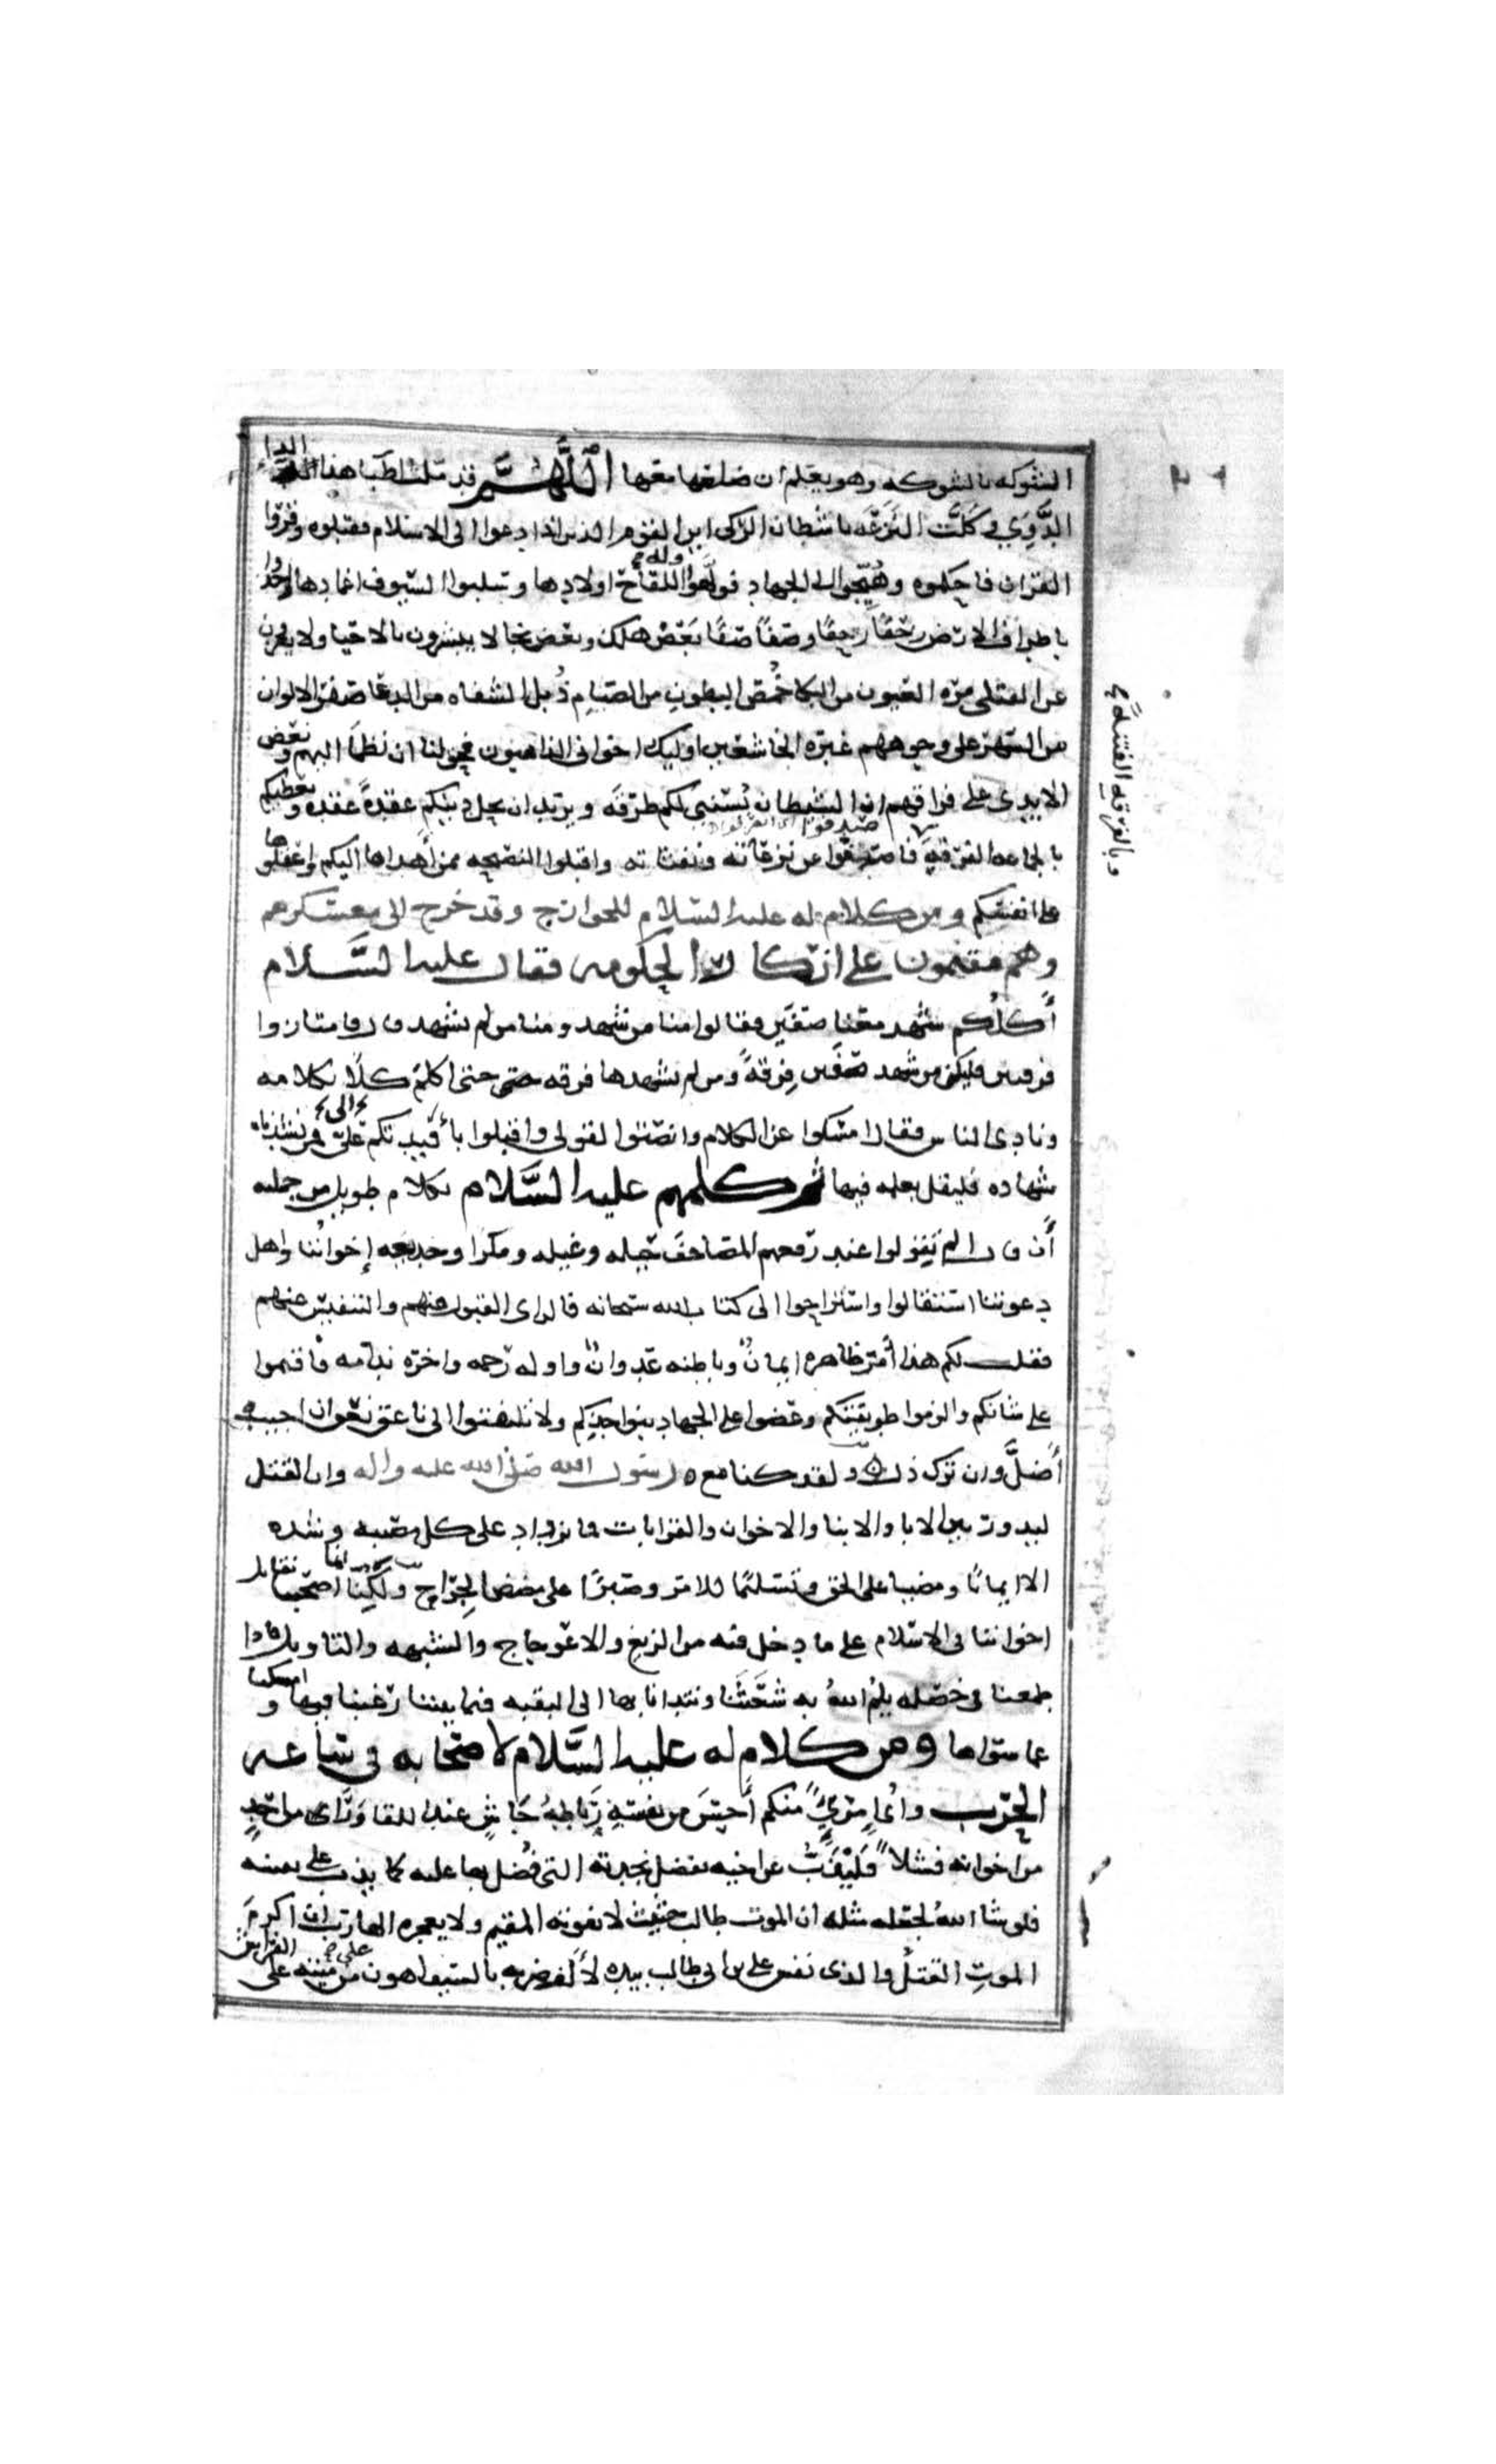 الشوكه بالشوكه وهو يعلم ان ضلعها معها اللَّهُمَّ قد ملت اطبا هذا الدا
الدَّوِي وكَلَّت النَزَعَه باشطان الركي اين القوم الذين اذا دعوا الى الاسلام فقبلوه وقروا
القران فاحكموه وهُيِّجوا الى الجهاد فولَّهوا اللقاح اولادها وسلبوا السيوف اغمادها واخذوا
باطراف الارض زحفًا زحفًا وصفًا صفًا بَعْضٌ هلك وبعض نجا لا يبشرون بالاحيا ولا يعزون
عن القتلى مره العيون من البكا خُمُص البطون من الصيام ذُبل الشفاه من الدعا صفر الالوان
من السهر على وجوههم غبره الخاشعين اوليك اخوانى الذاهبون فحق لنا ان نظمأ اليهم ونعض
الايدى على فراقهم ان الشيطان يُسَنِّي لكم طرقه ويريد ان يحل دينكم عقدةً عقده ويعطيكم
بالجماعه الفرقه فاصدفوا عن نزغاته ونفثاته واقبلوا النصيحه ممن أهداها اليكم واعقلوها
على انفسكم ومن كلام له عليه السلام للخوارج وقد خرج الى معسكرهم
وهم مقيمون على انكار الحكومه فقال عليه السَّلام
أَكلُّكم شهد معنا صفين فقالوا منا من شهد ومنا من لم يشهد قال فامتازوا
فرقتين فليكن من شهد صفين فِرقةً ومن لم يشهدها فرقه حتى اكلم كلًّا بكلامه
ونادى الناس فقال امسكوا عن الكلام وانصتوا لقولى واقبلوا بأفيدتكم الى فمن نشدناه
شهاده فليقل بعلمه فيها ثم كلمهم عليه السَّلام بكلام طويل من جملته
أن قال الم تقولوا عند رفعهم المصاحف حيله وغيله ومكرا وخديعه إخوانُنا واهل
دعوتنا استقالوا واستراحوا الى كتاب الله سبحانه فالراى القبول منهم والتنفيس عنهم
فقلت لكم هذا أمر ظاهره ايمانٌ وباطنه عدوانٌ واوله رحمه واخره ندامه فاقيموا
على شانكم والزموا طريقتكم وعضوا على الجهاد بنواجذكم ولا تلتفتوا الى ناعق نعق ان اجيب
أضلَّ وان ترك ذل ولقد كنا مع رسول الله صلى الله عليه واله وان القتل
ليدور بين الابا والابنا والاخوان والقرابات فما نزداد على كل مصيبه وشده
الا ايمانًا ومضيا على الحق وتسليمًا للامر وصبرًا على مضض الجِرَاح ولكنَّا انما اصبحنا نقاتل
اخواننا فى الاسلام على ما دخل فيه من الزيغ والاعوجاج والشبهه والتاويل فاذا
طمعنا فى خصله يلمُّ اللهُ به شَعَثَنا ونتدانا بها الى البقيه فيما بيننا رغبنا فيها وامسكنا
عما سواها ومن كلام له عليه السَّلام لاصحابه فى ساعه
الحرب واىُّ امرىٍ منكم أَحَسَّ من نفسهِ رَبَاطهُ جَاشٍ عند اللقا ورَأى من احدٍ
من اخوانه فشلاً فَلْيَذُبَّ عن اخيه بفضل نجدته التى فُضل بها عليه كما يذب على نفسه
فلو شا اللهُ لجعله مثله ان الموت طالب حثيث لا يفوته المقيم ولا يعجزه الهارب ان اكرمَ
الموتِ القتلُ والذى نفس على بن ابى طالب بيده لأَلف ضربه بالسيف اهون من ميته على الفراش
وبالفرقه الفتنه